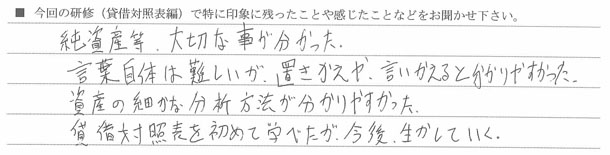 ■ 今回の研修（貸借対照表編）で特に印象に残ったことや感じたことなどをお聞かせ下さい。
純資産等、大切な事が分かった.
言葉自体は難しいが、置きかえや、言いかえると分かりやすかった.
資産の細かな分析方法が分かりやすかった.
貸借対照表を初めて学べたが、今後、生かしていく.